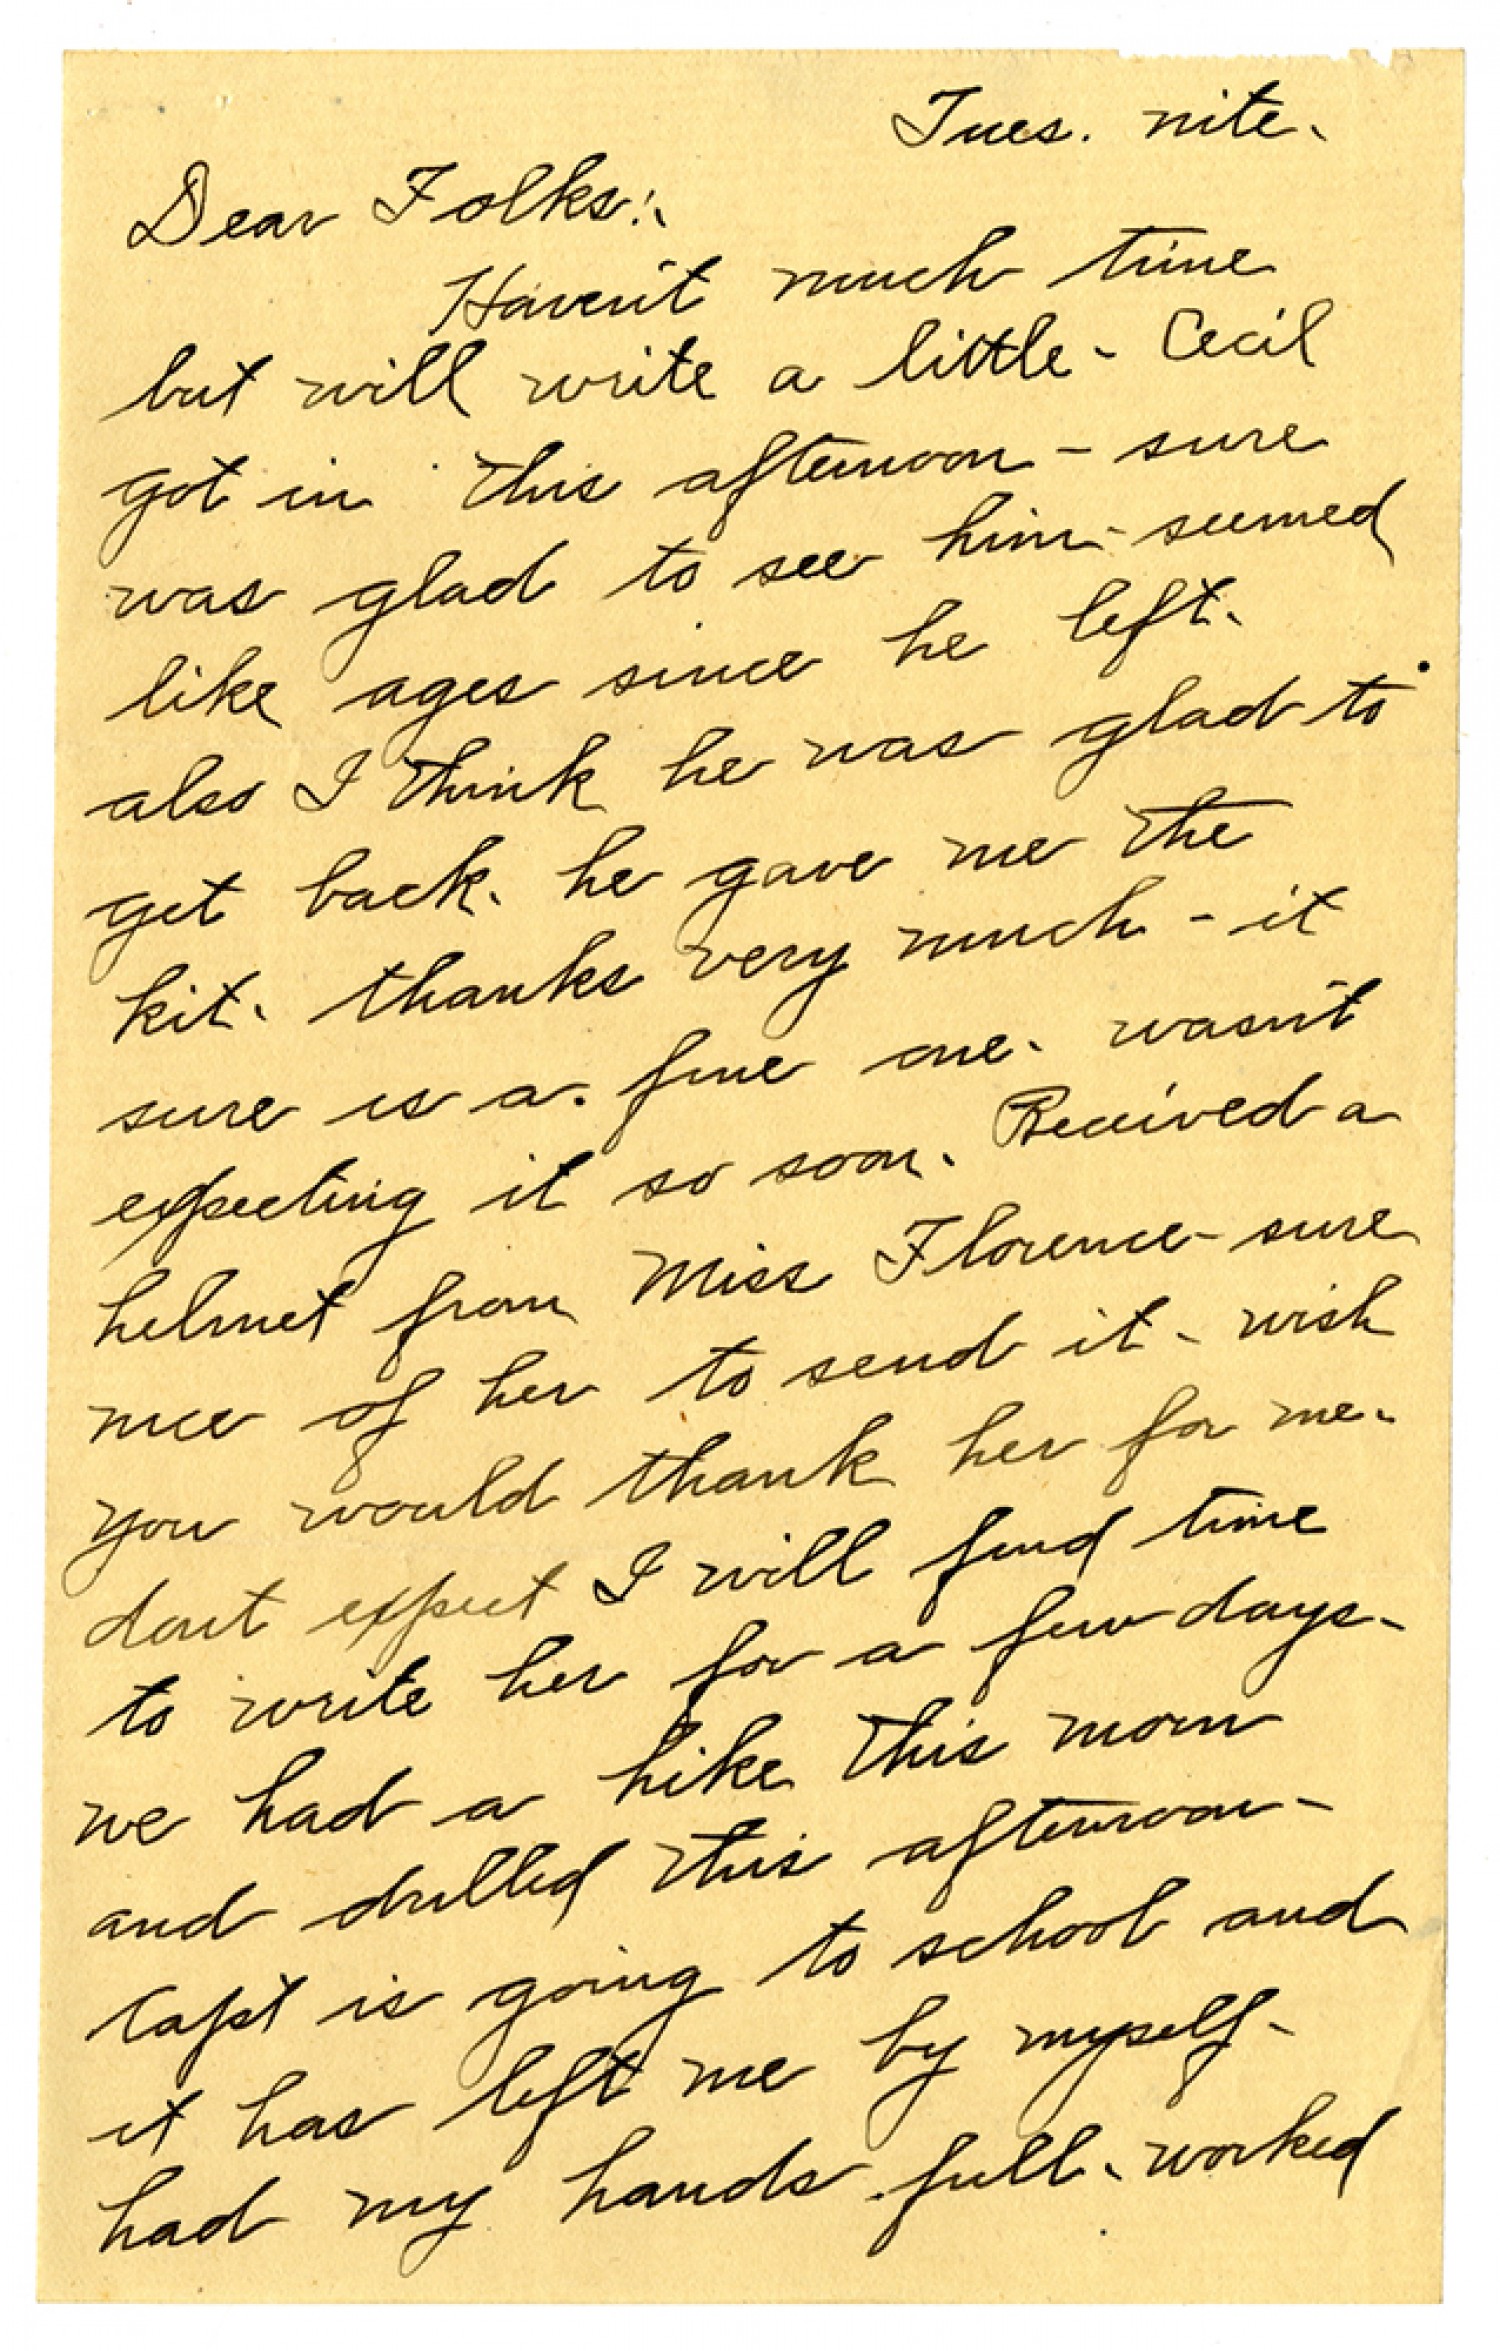 Tues. nite.
Dear Folks:
Haven't much time
but will write a little - Cecil
got in this afternoon - sure
was glad to see him - seemed
like ages since he left.
also I think he was glad to
get back. he gave me the
kit. thanks very much - it
sure is a fine one. wasn't
expecting it so soon. Received a
helmet from Miss Florence - sure
nice of her to send it - wish
you would thank her for me.
dont expect I will find time
to write her for a few days -
we had a hike this morn
and drilled this afternoon -
Capt is going to school and
it has left me by myself -
had my hands full. worked